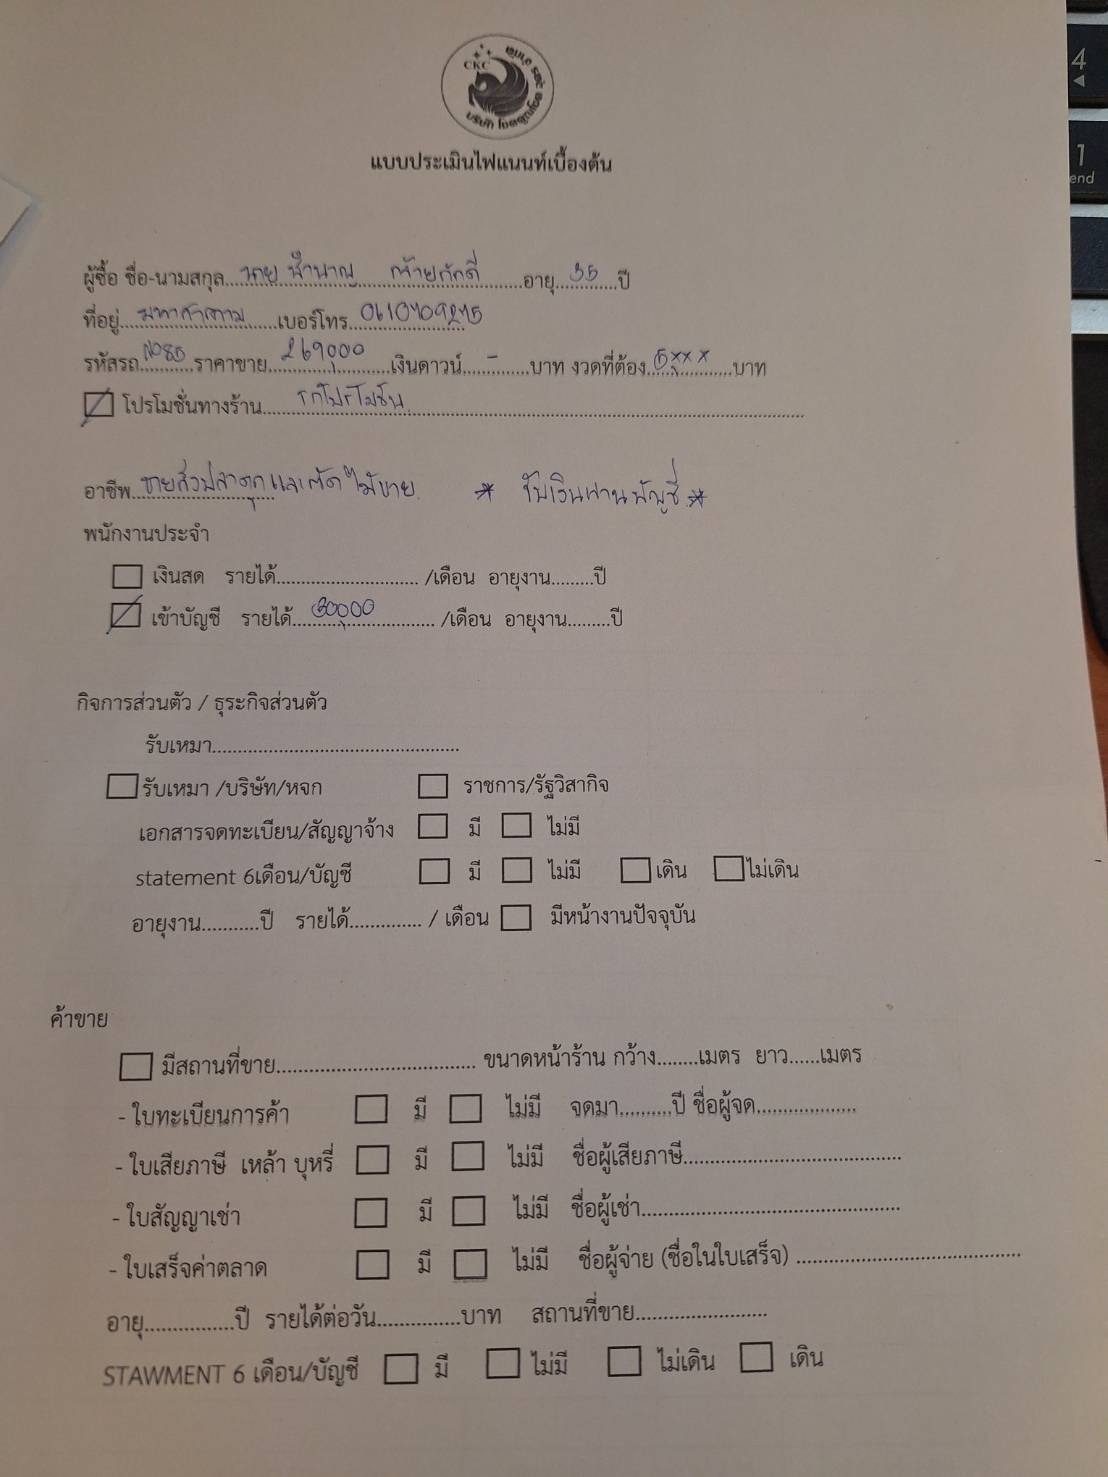 CKC
แบบประเมินไฟแนนท์เบื้องต้น
ผู้ซื้อ ชื่อ-นามสกุล....นาย ชำนาญ ....อายุ....35....ปี
ที่อยู่....มหาสารคาม....เบอร์โทร....0610709275
รหัสรถ....N085....ราคาขาย....269,000....เงินดาวน์....-....บาท งวดที่ต้อง....5,xxx....บาท
โปรโมชั่นทางร้าน....รถโปรโมชั่น....
อาชีพ....ขายส่งปลาดุกและตัดไม้ขาย * รับเงินผ่านบัญชี *
พนักงานประจำ
เงินสด รายได้.............................. /เดือน อายุงาน.........ปี
เข้าบัญชี รายได้....30,000.... /เดือน อายุงาน.........ปี
กิจการส่วนตัว / ธุระกิจส่วนตัว
รับเหมา..................................................
รับเหมา /บริษัท/หจก ราชการ/รัฐวิสากิจ
เอกสารจดทะเบียน/สัญญาจ้าง มี ไม่มี
statement 6เดือน/บัญชี มี ไม่มี เดิน ไม่เดิน
อายุงาน...........ปี รายได้.............. / เดือน มีหน้างานปัจจุบัน
ค้าขาย
มีสถานที่ขาย........................................ ขนาดหน้าร้าน กว้าง........เมตร ยาว......เมตร
- ใบทะเบียนการค้า มี ไม่มี จดมา..........ปี ชื่อผู้จด...................
- ใบเสียภาษี เหล้า บุหรี่ มี ไม่มี ชื่อผู้เสียภาษี..........................................
- ใบสัญญาเช่า มี ไม่มี ชื่อผู้เช่า..................................................
- ใบเสร็จค่าตลาด มี ไม่มี ชื่อผู้จ่าย (ชื่อในใบเสร็จ) ............................................
อายุ.................ปี รายได้ต่อวัน................บาท สถานที่ขาย.........................
STAWMENT 6 เดือน/บัญชี มี ไม่มี ไม่เดิน เดิน
4
1
end